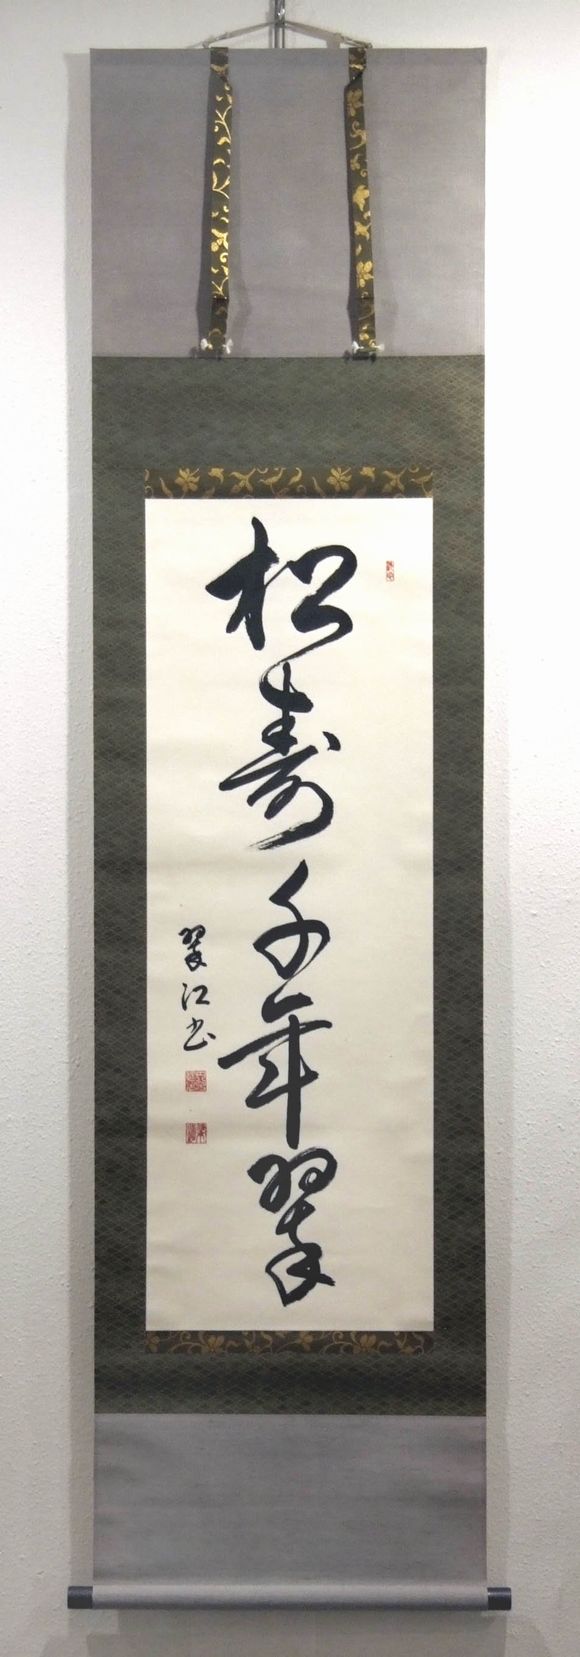 松寿千年翠
翠江書